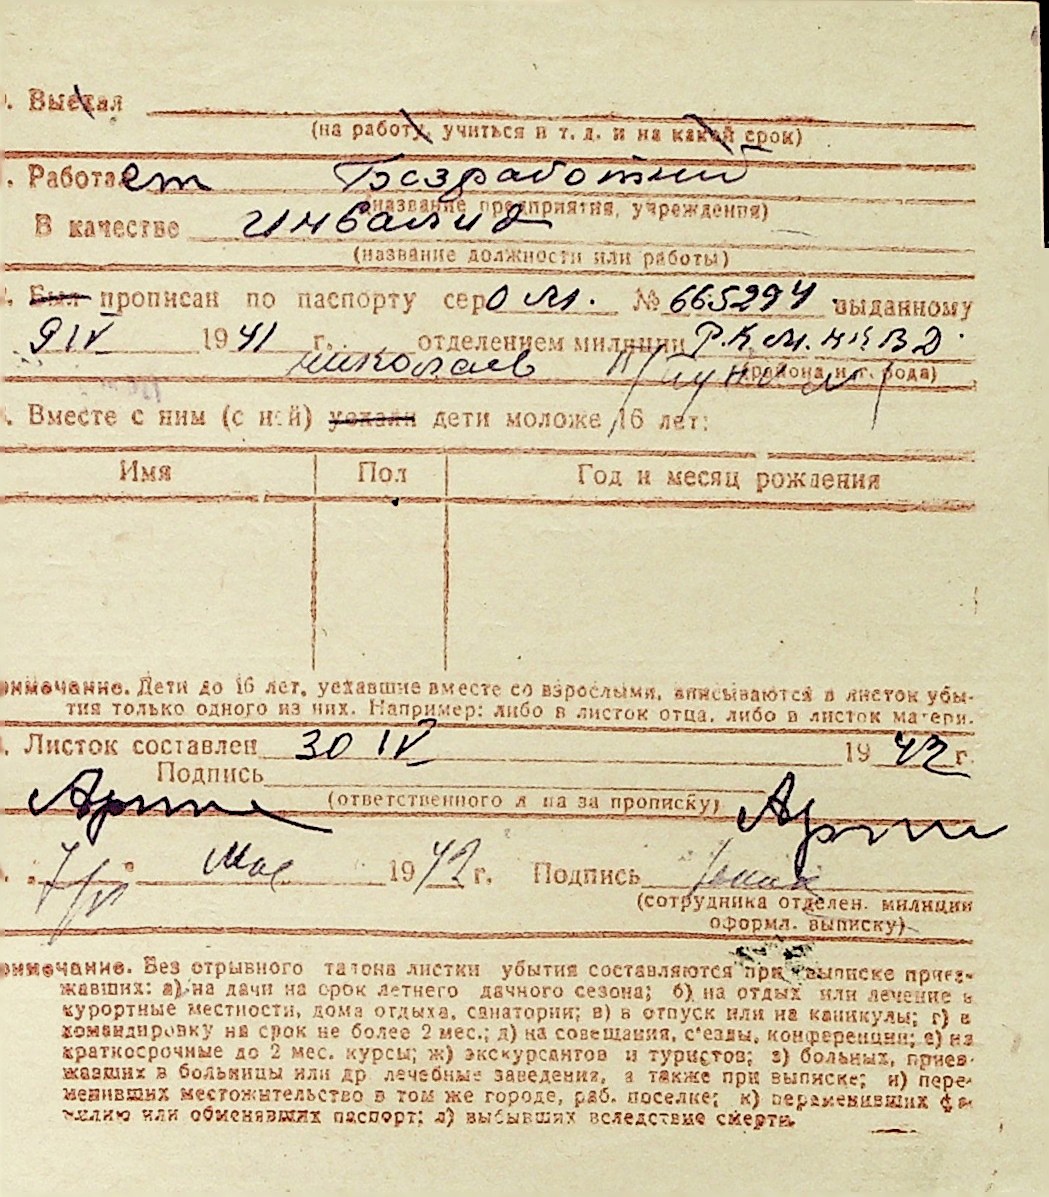 . Выехал
(на работу, учиться и т. д. и на какой срок)
. Работает Безработный
(название предприятия, учреждения)
В качестве инвалид
(название должности или работы)
. Был прописан по паспорту сер О М. № 665294 выданному
9 IV 1941 г. отделением милиции Р.К.М.НКВД.
Николаев (района и г. рода)
. Вместе с ним (с ней) уехали дети моложе 16 лет:
Имя Пол Год и месяц рождения
имечание. Дети до 16 лет, уехавшие вместе со взрослыми, вписываются в листок убы-
тия только одного из них. Например: либо в листок отца, либо в листок матери.
. Листок составлен 30 IV 1942 г.
Подпись
(ответственного л на за прописку)
. 7 Мае 1942 г. Подпись
(сотрудника отделен. милиции
оформл. выписку)
имечание. Без отрывного талона листки убытия составляются при выписке приез-
жавших: а) на дачи на срок летнего дачного сезона; б) на отдых или лечение в
курортные местности, дома отдыха, санатории; в) в отпуск или на каникулы; г) в
командировку на срок не более 2 мес.; д) на совещания, с'езды, конференции; е) на
краткосрочные до 2 мес. курсы; ж) экскурсантов и туристов; з) больных, приез-
жавших в больницы или др лечебные заведения, а также при выписке; и) пере-
менивших местожительство в том же городе, раб. поселке; к) переменивших фа-
милию или обменявших паспорт; л) выбывших вследствие смерти.